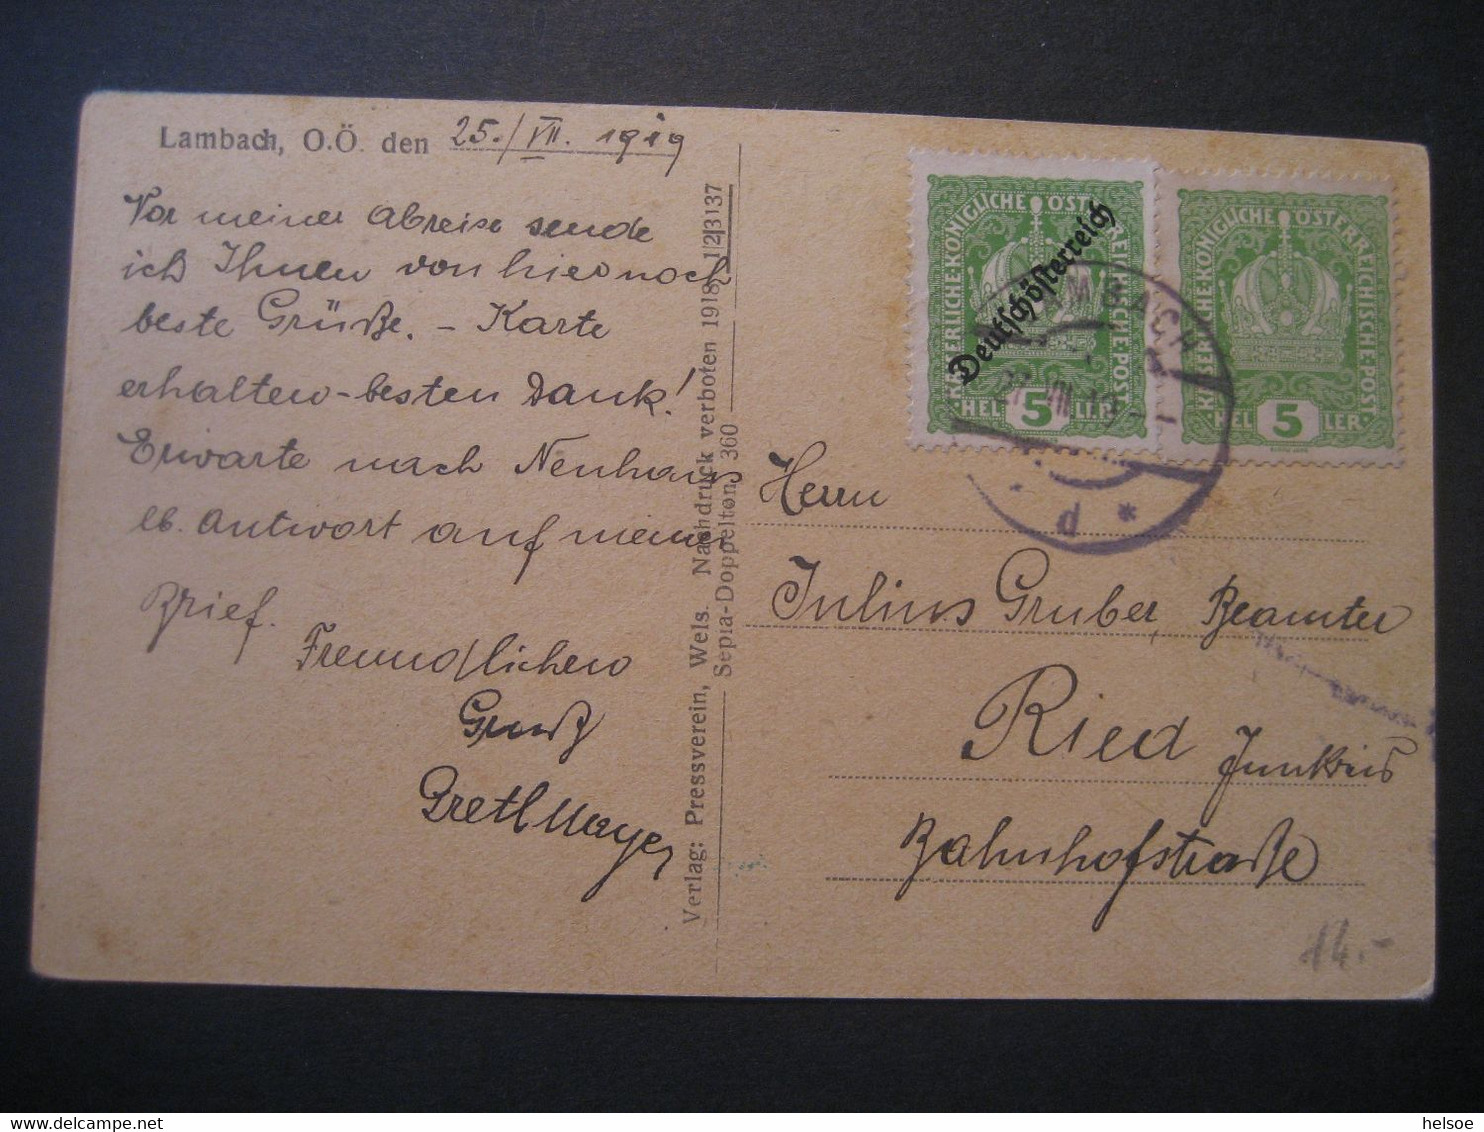 Lambach, O.Ö. den 25./VII. 1919
Vor meiner Abreise sende
ich Ihnen von hier noch
beste Grüße. – Karte
erhalten – besten Dank!
Erwarte nach Neuhaus
lb. Antwort auf meinen
Brief.
Freundlichen
Gruß
Gretl Mayer
Verlag: Pressverein, Wels. Nachdruck verboten 1918 1|2|3137
Sepia-Doppelton 360
KAISERLICHE KÖNIGLICHE ÖSTERREICHISCHE POST
Deutschösterreich
5
HELLER
KAISERLICHE KÖNIGLICHE ÖSTERREICHISCHE POST
5
HELLER
LAMBACH
* d *
Herrn
Julius Gruber, Beamter
Ried Innkreis
Bahnhofstraße
14.-
helsoe